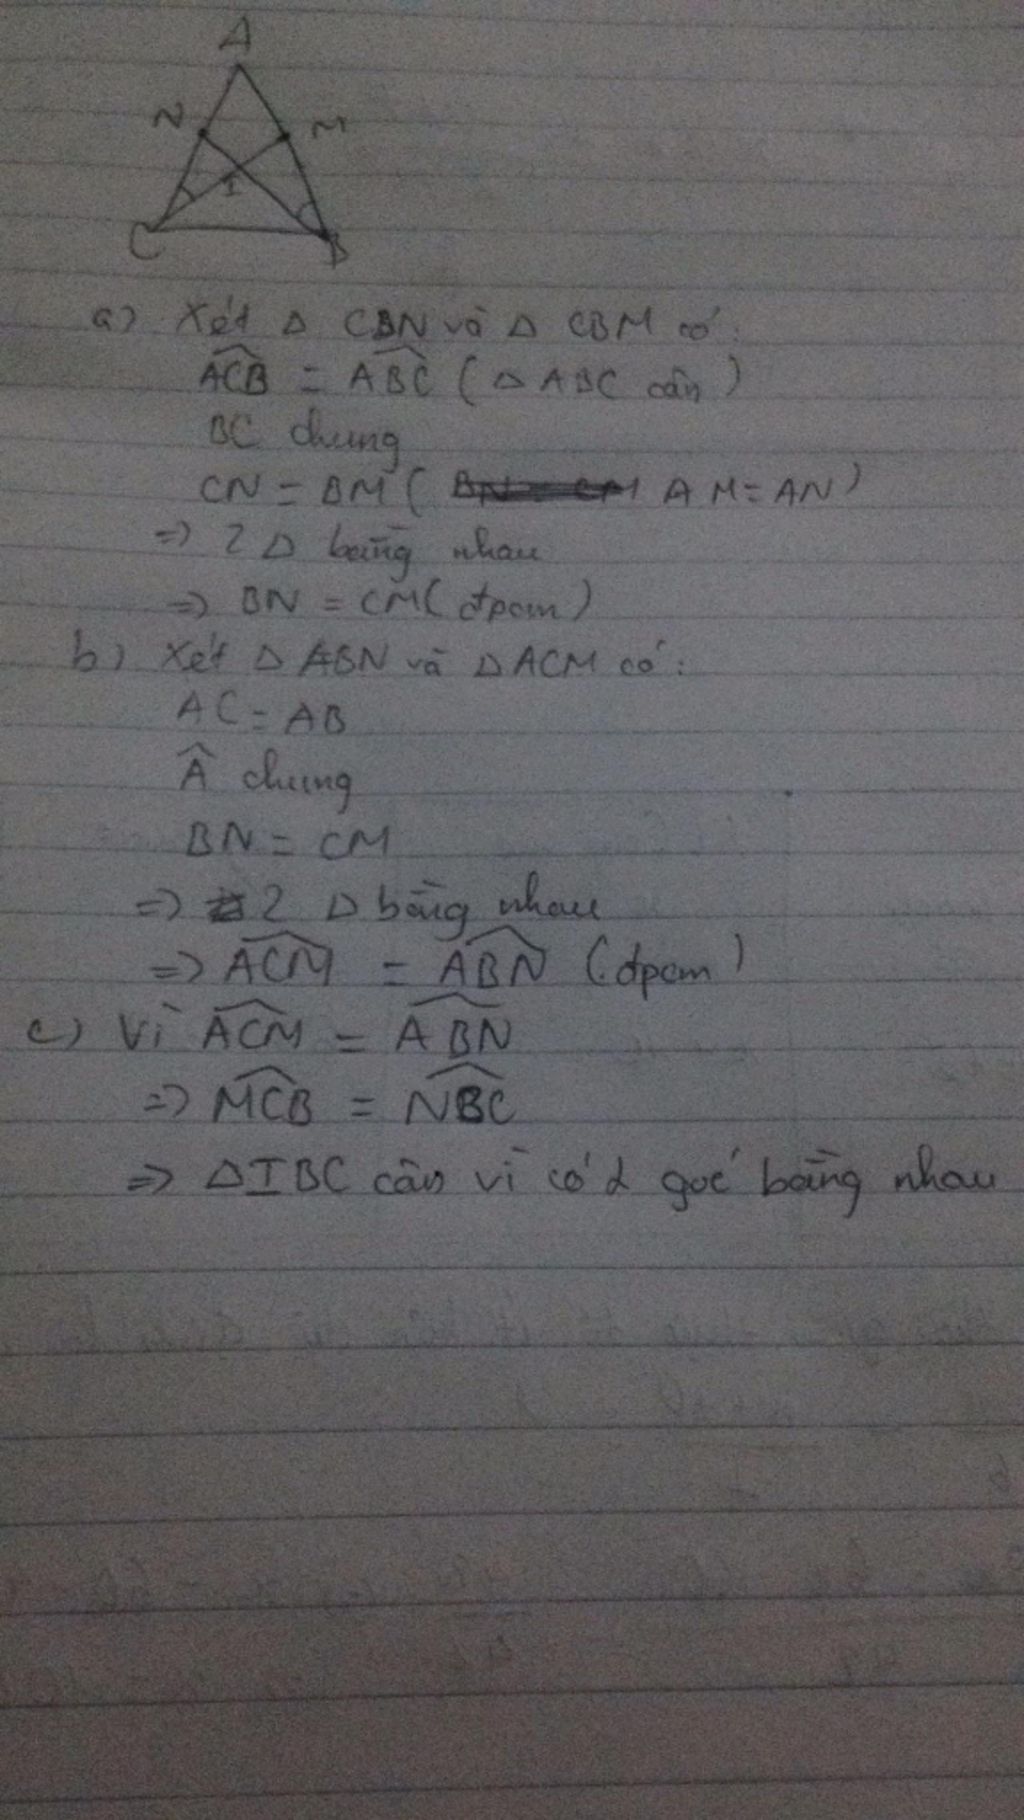 A
N M
I
C B
a) Xét Δ CBN và Δ CBM có:
ACB = ABC (Δ ABC cân)
BC chung
CN = BM ( AM = AN)
=> 2 Δ bằng nhau
=> BN = CM (đpcm)
b) Xét Δ ABN và Δ ACM có:
AC = AB
Â chung
BN = CM
=> 2 Δ bằng nhau
=> ACM = ABN (đpcm)
c) Vì ACM = ABN
=> MCB = NBC
=> ΔIBC cân vì có 2 goć bằng nhau